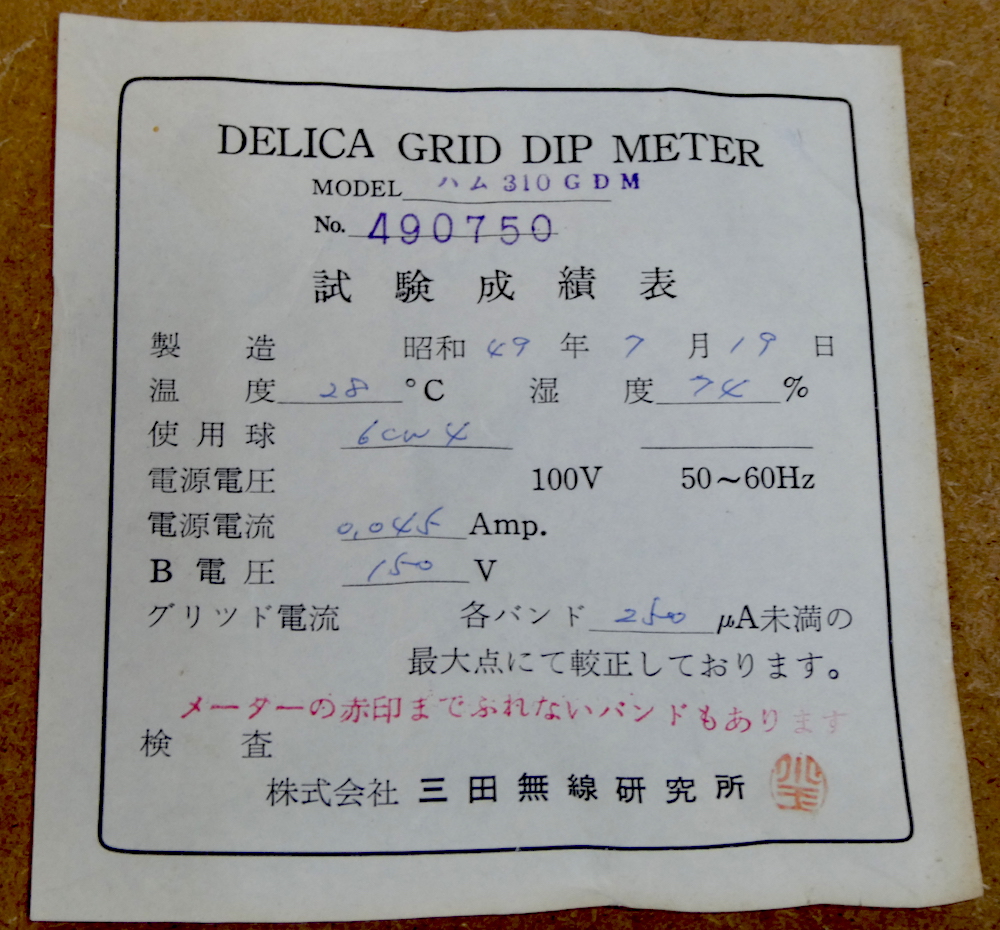 DELICA GRID DIP METER
MODEL ハム310GDM
No. 490750
試験成績表
製造 昭和49年7月19日
温度 28 °C 湿度 74 %
使用球 6CW4
電源電圧 100V 50～60Hz
電源電流 0.045 Amp.
B電圧 150 V
グリツド電流 各バンド 250 μA未満の
最大点にて較正しております。
メーターの赤印までふれないバンドもあります
検査
株式会社 三田無線研究所